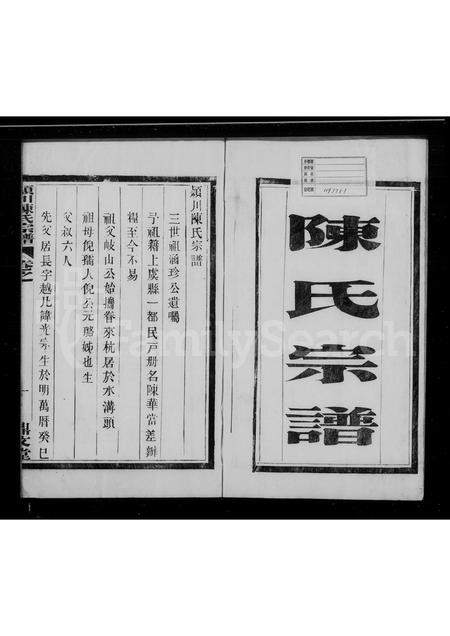 陳氏宗譜
潁川陳氏宗譜
三世祖涵珍公遺囑
予祖籍上虞縣一都民戸册名陳華當差辦
糧至今不易
祖父岐山公始攜眷來杭居於水溝頭
祖母倪孺人倪公元璐姊也生
父叔六人
先父居長字越乃諱光宗生於明萬曆癸巳
潁川陳氏宗譜 卷之一
一
鼎文堂
FamilySearch